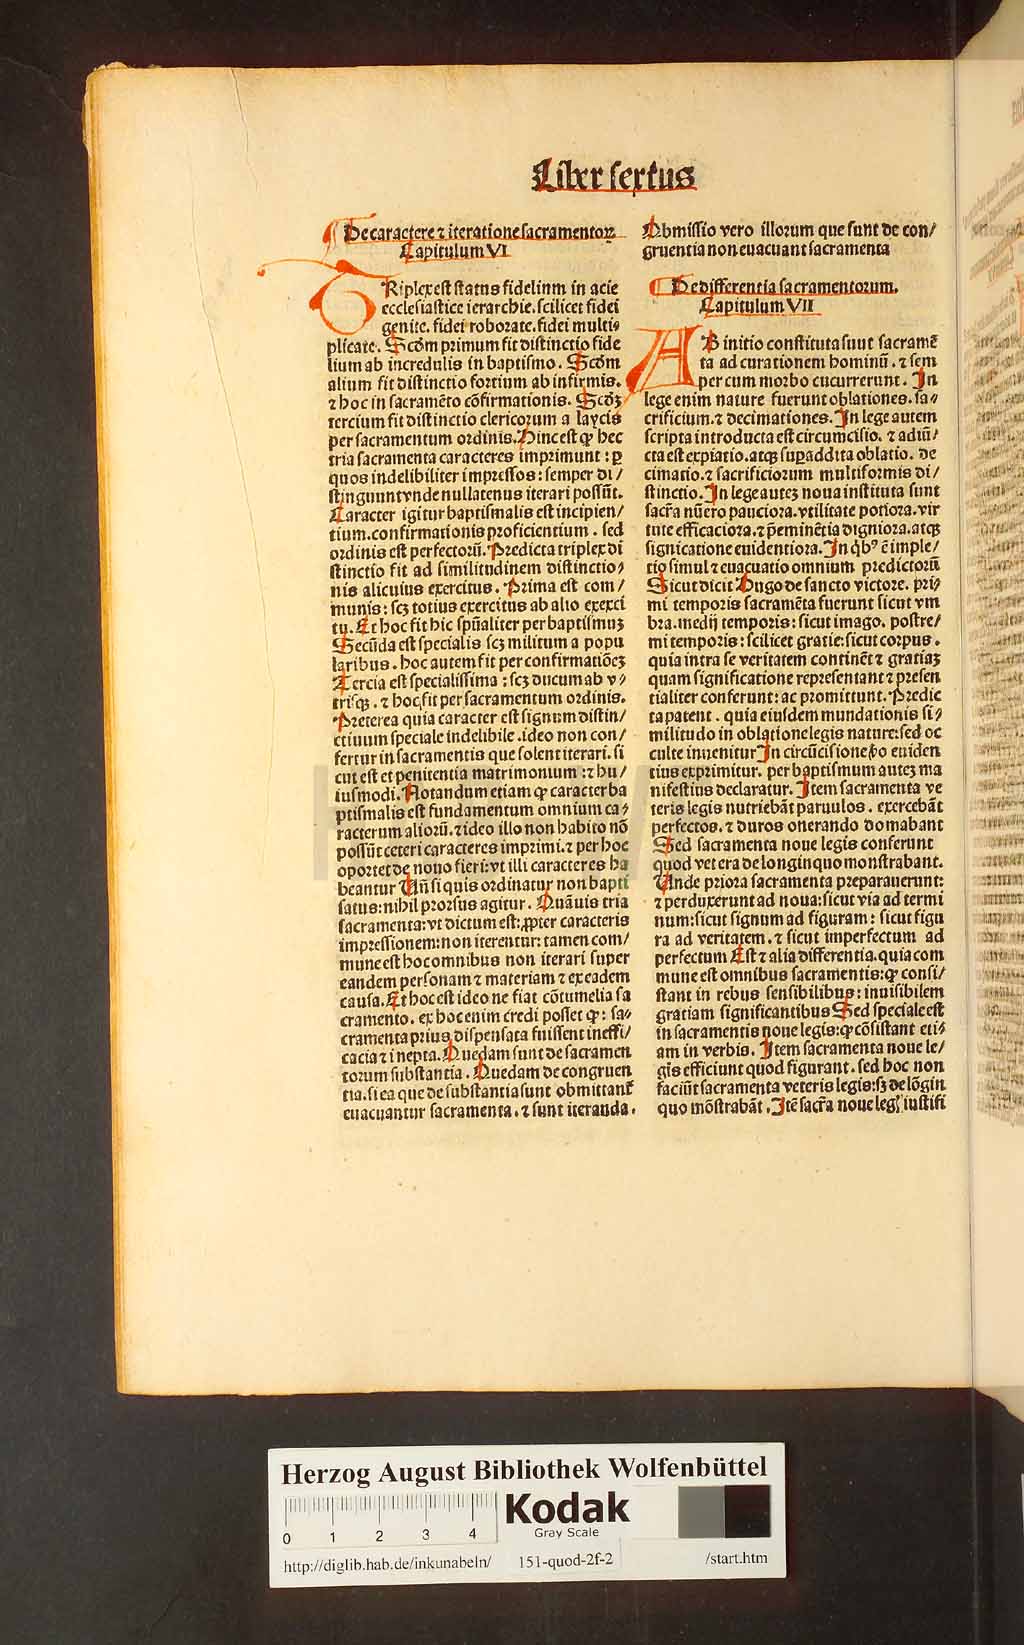 Liber sextus
De caractere ⁊ iteratione sacramentoꝝ
Capitulum VI
TRiplex est status fidelium in acie
ecclesiastice ierarchie. scilicet fidei
genite. fidei roborate. fidei multi⸗
plicate. Scđm primum fit distinctio fide
lium ab incredulis in baptismo. Scđm
alium fit distinctio fortium ab infirmis.
⁊ hoc in sacramēto cōfirmationis. Scđꝫ
tercium fit distinctio clericorum a laycis
per sacramentum ordinis. Hinc est ꝙ hec
tria sacramenta caracteres imprimunt : ꝑ
quos indelibiliter impressos : semper di/
stinguunt vnde nullatenus iterari possūt.
Caracter igitur baptismalis est incipien/
tium. confirmationis proficientium . sed
ordinis est perfectorū. Predicta triplex di
stinctio fit ad similitudinem distinctio⸗
nis alicuius exercitus. Prima est com/
munis : scꝫ totius exercitus ab alio exerci
tu. Et hoc fit hic spūaliter per baptismuꝫ
Secūda est specialis scꝫ militum a popu
laribus. hoc autem fit per confirmatiōeꝫ
Tercia est specialissima : scꝫ ducum ab v⸗
trisqꝫ. ⁊ hoc fit per sacramentum ordinis.
Preterea quia caracter est signum distin/
ctiuum speciale indelibile. ideo non con/
fertur in sacramentis que solent iterari. si
cut est et penitentia matrimonium : ⁊ hu/
iusmodi. Notandum etiam ꝙ caracter ba
ptismalis est fundamentum omnium ca⸗
racterum aliorū. ⁊ ideo illo non habito nō
possūt ceteri caracteres imprimi. ⁊ per hoc
oportet de nouo fieri : vt illi caracteres ha
beantur Uñ si quis ordinatur non bapti
satus : nihil prorsus agitur. Quāuis tria
sacramenta : vt dictum est : ꝓpter caracteris
impressionem : non iterentur : tamen com/
mune est hoc omnibus non iterari super
eandem personam ⁊ materiam ⁊ ex eadem
causa. Et hoc est ideo ne fiat cōtumelia sa
cramento. ex hoc enim credi posset ꝙ : sa⸗
cramenta prius dispensata fuissent ineffi/
cacia ⁊ inepta. Quedam sunt de sacramen
torum substantia. Quedam de congruen
tia. si ea que de substantia sunt obmittant᷑
euacuantur sacramenta. ⁊ sunt iteranda.
Obmissio vero illorum que sunt de con/
gruentia non euacuant sacramenta
De differentia sacramentorum.
Capitulum VII
AB initio constituta sunt sacramē
ta ad curationem hominū. ⁊ sem
per cum morbo cucurrerunt. In
lege enim nature fuerunt oblationes. sa⸗
crificium. ⁊ decimationes. In lege autem
scripta introducta est circumcisio. ⁊ adiū/
cta est expiatio. atqꝫ superaddita oblatio. de
cimatio. ⁊ sacrificiorum multiformis di/
stinctio. In lege auteꝫ noua instituta sunt
sacr̄a nūero pauciora. vtilitate potiora. vir
tute efficaciora. ⁊ p̄eminētia digniora. atqꝫ
signicatione euidentiora. In q̇bꝰ ē imple/
tio simul ⁊ euacuatio omnium predictorū
Sicut dicit Hugo de sancto victore. pri⸗
mi temporis sacramēta fuerunt sicut vm
bra. medij temporis : sicut imago. postre/
mi temporis : scilicet gratie : sicut corpus.
quia intra se veritatem continēt ⁊ gratiaꝫ
quam significatione representant ⁊ presen
tialiter conferunt : ac promittunt. Predic
ta patent. quia eiusdem mundationis si⸗
militudo in oblatione legis nature : sed oc
culte inuenitur In circūcisione ꝟo euiden
tius exprimitur. per baptismum auteꝫ ma
nifestius declaratur. Item sacramenta ve
teris legis nutriebāt paruulos. exercebāt
perfectos. ⁊ duros onerando domabant
Sed sacramenta noue legis conferunt
quod vetera de longinquo monstrabant.
Unde priora sacramenta preparauerunt:
⁊ perduxerunt ad noua : sicut via ad termi
num : sicut signum ad figuram : sicut figu
ra ad veritatem. ⁊ sicut imperfectum ad
perfectum Est ⁊ alia differentia. quia com
mune est omnibus sacramentis : ꝙ consi/
stant in rebus sensibilibus : inuisibilem
gratiam significantibus Sed speciale est
in sacramentis noue legis : ꝙ cōsistant eti⸗
am in verbis. Item sacramenta noue le/
gis efficiunt quod figurant. sed hoc non
faciūt sacramenta veteris legis : sꝫ de lōgin
quo mōstrabāt. Itē sacr̄a noue leg̉ iustifi
Herzog August Bibliothek Wolfenbüttel
Kodak
Gray Scale
0 1 2 3 4
http://diglib.hab.de/inkunabeln/ 151-quod-2f-2 /start.htm